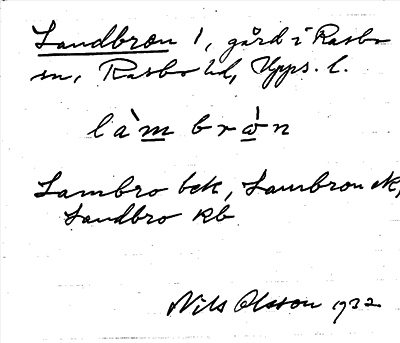 Landbron 1, gård i Rasbo
sn, Rasbo hd, Upps. l.
là̀m brò̀n
Lambro bck, Lambron ek,
Landbro kb
Nils Olsson 1932